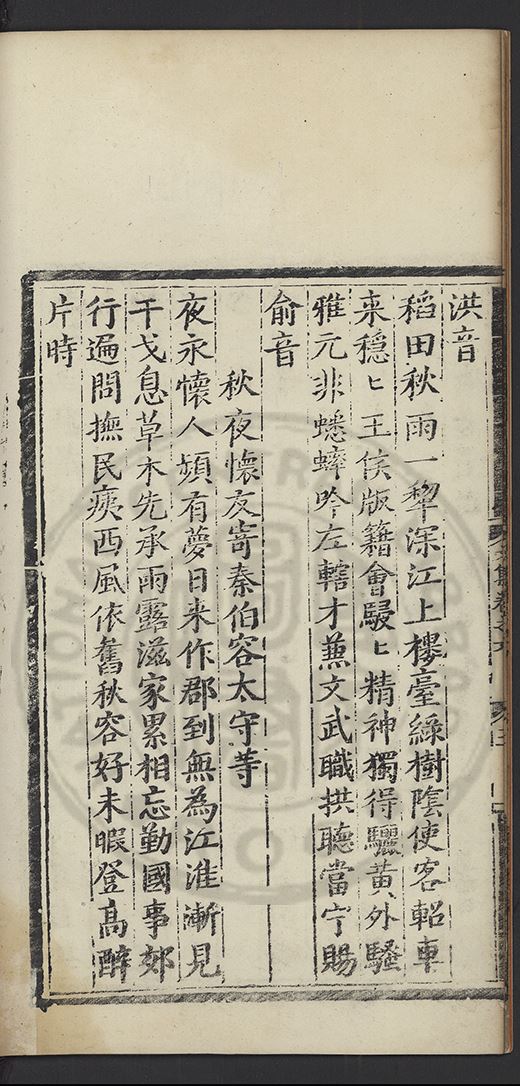 洪音
稻田秋雨一犂深江上樓臺綠樹陰使客軺車
来穩匕王侯版籍會駸匕精神獨得驪黄外騷
雅元非蟋蟀吟左轄才兼文武職拱聽當宁賜
俞音
秋夜懷友寄秦伯容太守等
夜永懷人頻有夢日来作郡到無為江淮漸見
干戈息草木先承雨露滋家累相忘勤國事郊
行遍問撫民痍西風依舊秋容好未暇登高醉
片時